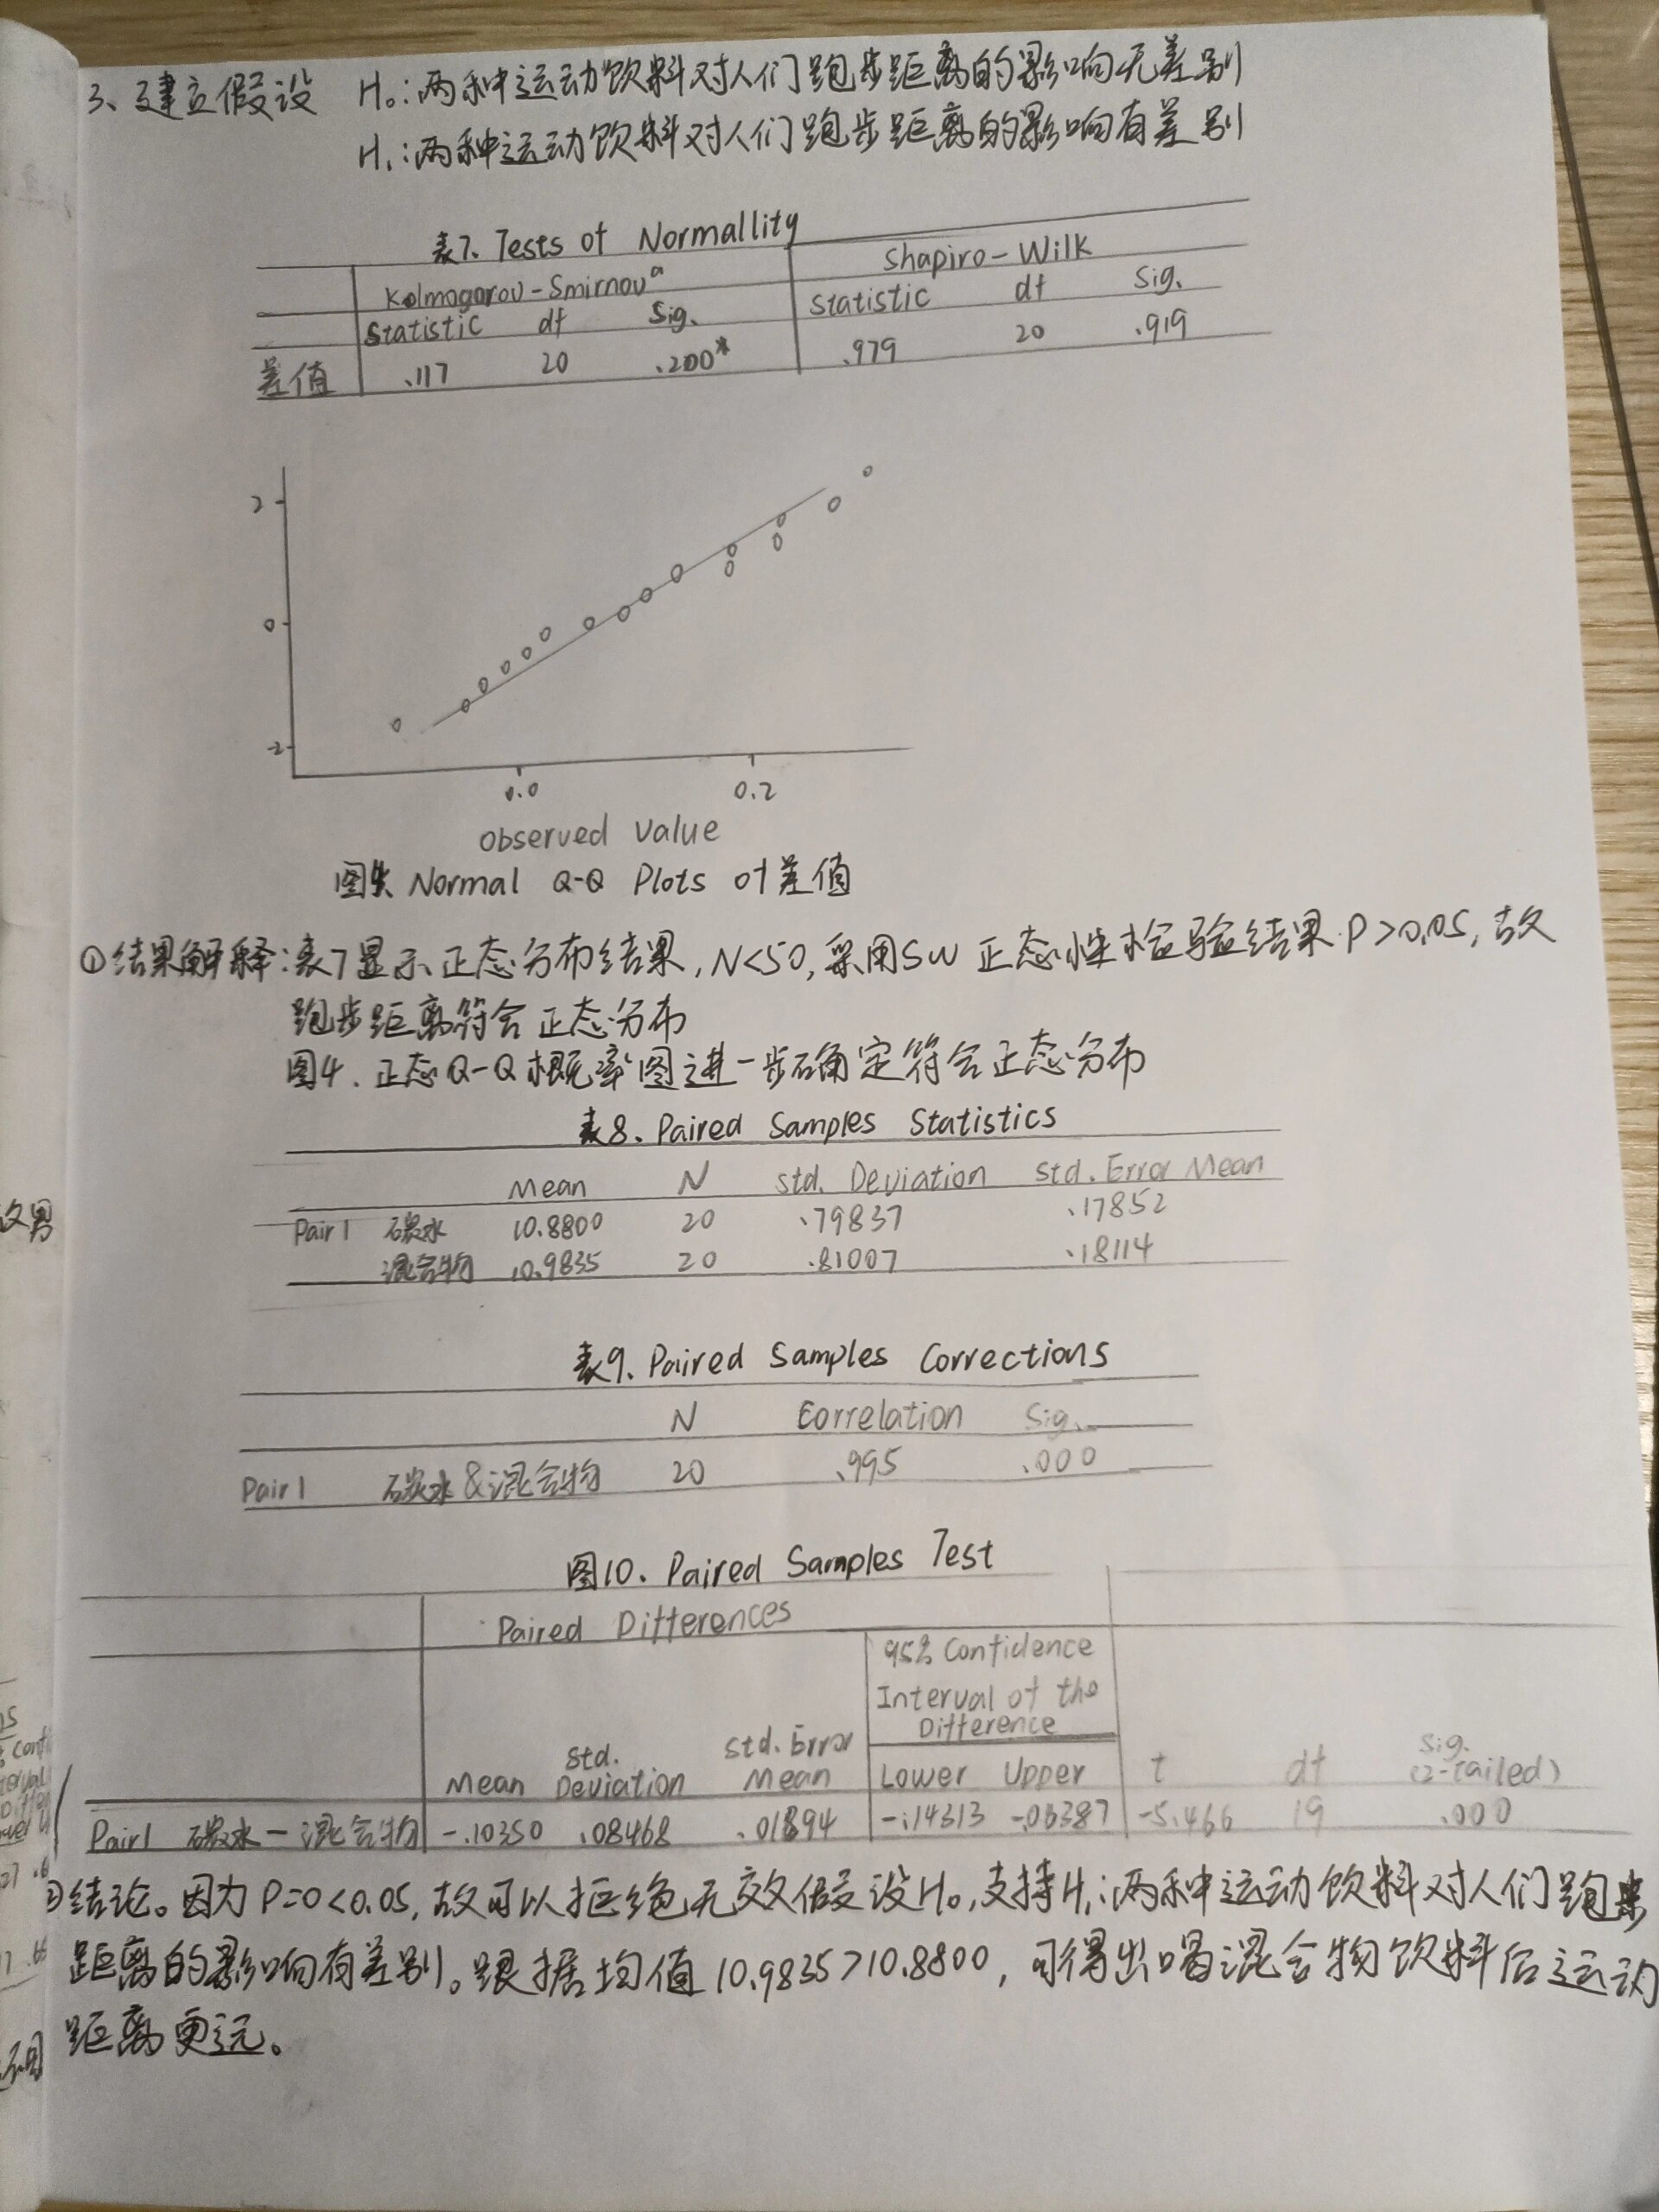 3、建立假设 H₀:两种运动饮料对人们跑步距离的影响无差别
H₁:两种运动饮料对人们跑步距离的影响有差别
表7. Tests of Normallity
Kolmogorov-Smirnovᵃ Shapiro-Wilk
Statistic df Sig. Statistic df Sig.
差值 .117 20 .200* .979 20 .919
2
0
-2
0.0 0.2
Observed Value
图4 Normal Q-Q Plots of 差值
①结果解释:表7显示正态分布结果,N<50,采用SW正态性检验结果P>0.05,故
跑步距离符合正态分布
图4.正态Q-Q概率图进一步确定符合正态分布
表8. Paired Samples Statistics
Mean N Std. Deviation Std. Error Mean
Pair1 碳水 10.8800 20 .79837 .17852
混合物 10.9835 20 .81007 .18114
表9. Paired Samples Corrections
N Correlation Sig.
Pair1 碳水&混合物 20 .995 .000
图10. Paired Samples Test
Paired Differences
95% Confidence
Interval of the
Difference
Mean Std. Deviation Std. Error Mean Lower Upper t df Sig. (2-tailed)
Pair1 碳水-混合物 -.10350 .08468 .01894 -.14313 -.06387 -5.466 19 .000
②结论。因为P=0<0.05,故可以拒绝无效假设H₀,支持H₁:两种运动饮料对人们跑步
距离的影响有差别。跟据均值10.9835>10.8800,可得出喝混合物饮料后运动
距离更远。